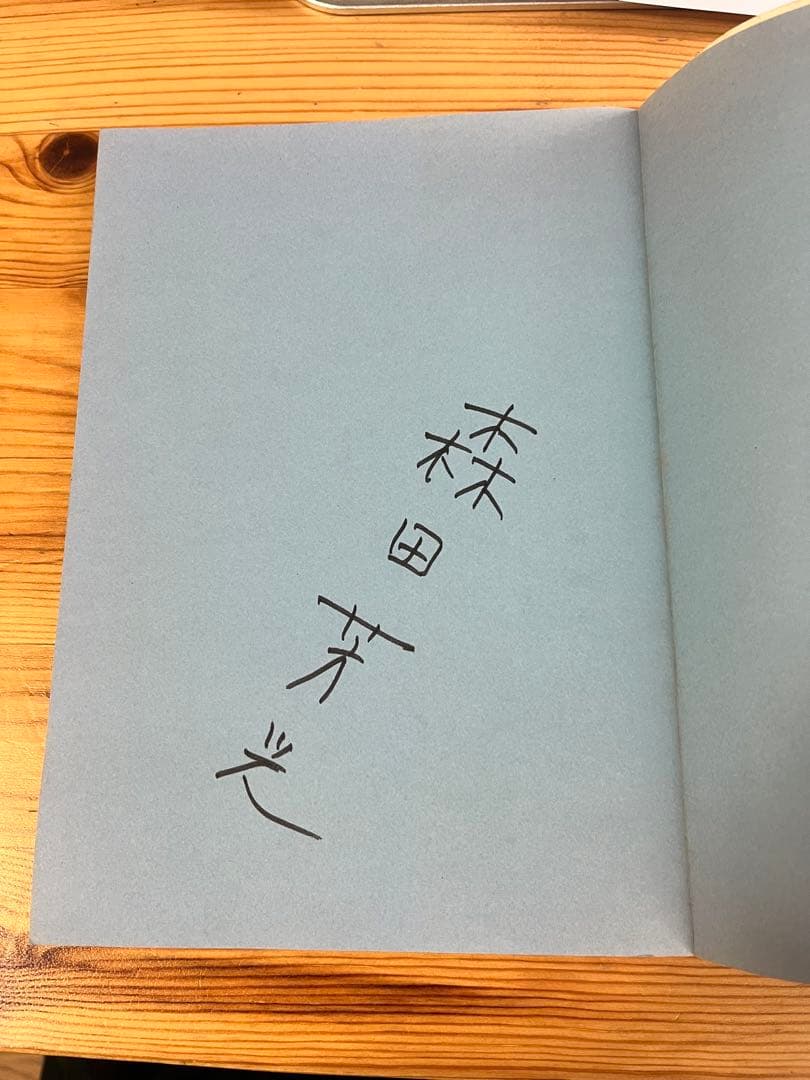 森田芳光